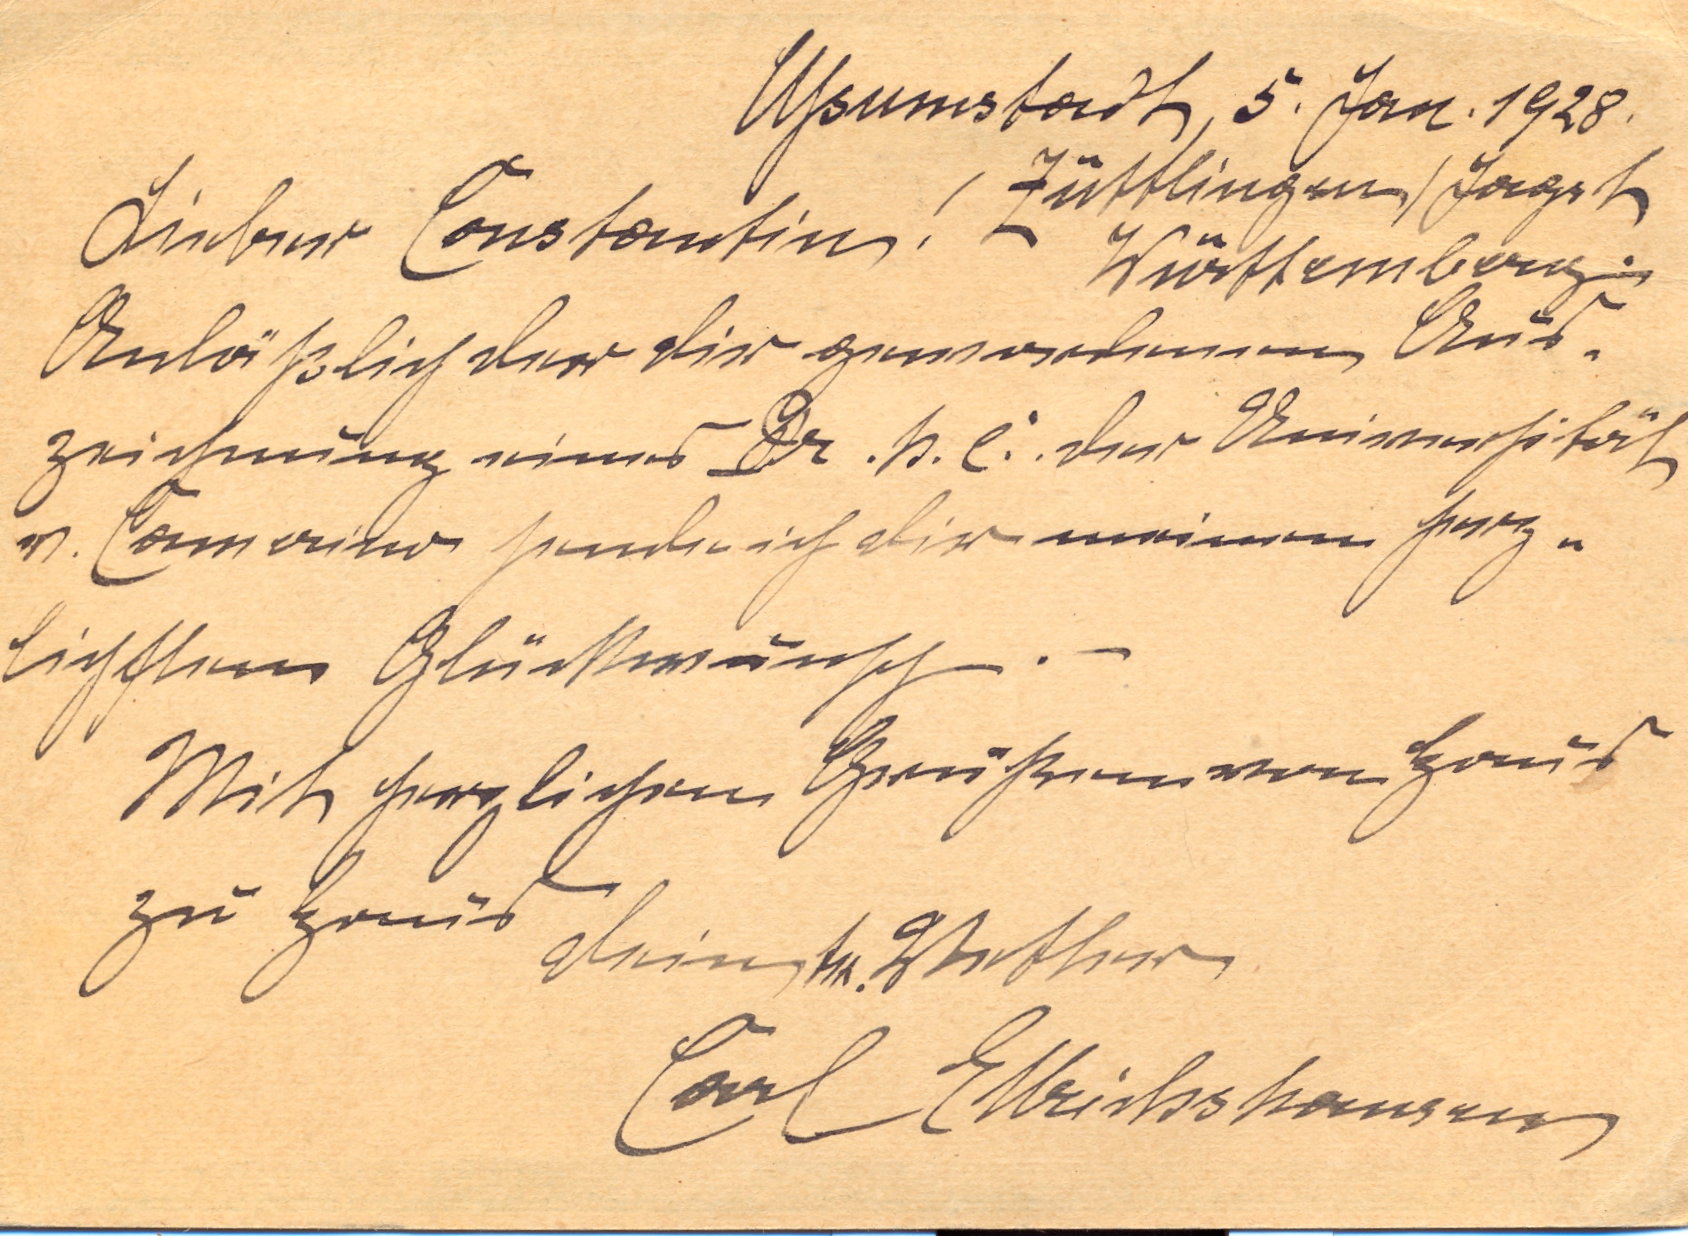 Assumstadt, 5. Jan. 1928.
Züttlingen/Jagst
Württemberg.
Lieber Constantin!
Anläßlich der dir gewordenen Aus-
zeichnung eines Dr. h. c. der Universität
v. Camerino sende ich dir meinen herz-
lichsten Glückwunsch. —
Mit herzlichen Grüßen von Haus
zu Haus
dein tr. Vetter
Carl Ellrichshausen